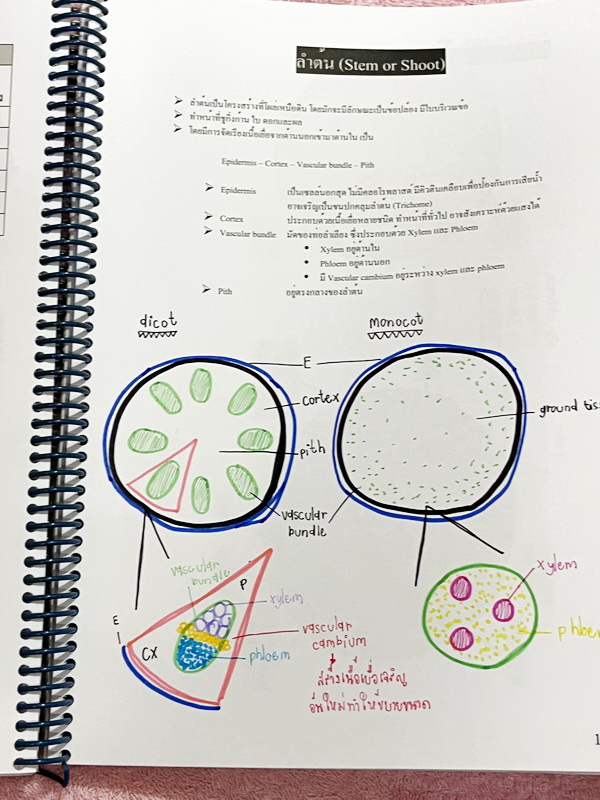 ลำต้น (Stem or Shoot)
➤ ลำต้นเป็นโครงสร้างที่โผล่เหนือดิน โดยมักจะมีลักษณะเป็นข้อปล้อง มีใบบริเวณข้อ
➤ ทำหน้าที่ชูกิ่งก้าน ใบ ดอกและผล
➤ โดยมีการจัดเรียงเนื้อเยื่อจากด้านนอกเข้ามาด้านใน เป็น
Epidermis – Cortex – Vascular bundle – Pith
➤ Epidermis เป็นเซลล์นอกสุด ไม่มีคลอโรพลาสต์ มีคิวตินเคลือบเพื่อป้องกันการเสียน้ำ
อาจเจริญเป็นขนปกคลุมลำต้น (Trichome)
➤ Cortex ประกอบด้วยเนื้อเยื่อหลายชนิด ทำหน้าที่ทั่วไป อาจสังเคราะห์ด้วยแสงได้
➤ Vascular bundle มัดของท่อลำเลียง ซึ่งประกอบด้วย Xylem และ Phloem
• Xylem อยู่ด้านใน
• Phloem อยู่ด้านนอก
• มี Vascular cambium อยู่ระหว่าง xylem และ phloem
➤ Pith อยู่ตรงกลางของลำต้น
dicot
monocot
E
cortex
ground tis
pith
vascular
bundle
vascular
bundle
P
xylem
xylem
E
CX
vascular
cambium
phloem
phloe
สร้างเนื้อเยื่อเจริญ
อันใหม่ทำให้ขยายขนาด
1